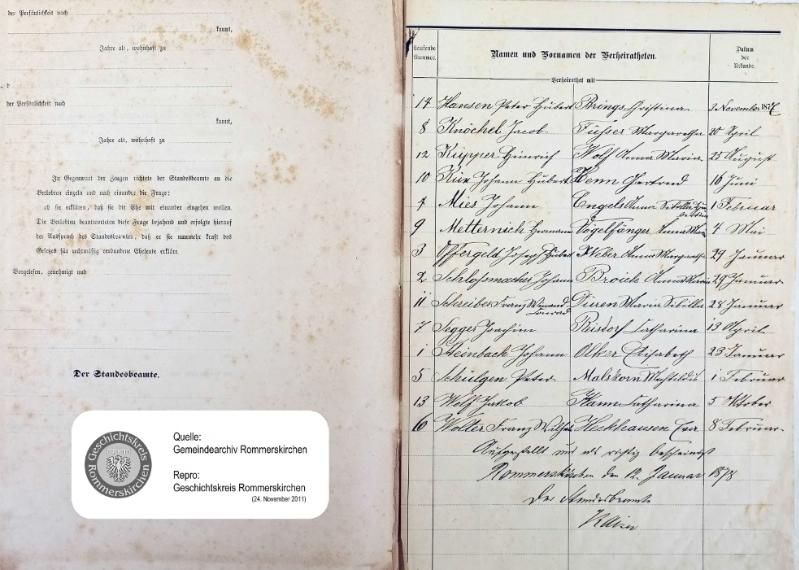 der Persönlichkeit nach
kannt,
Jahre alt, wohnhaft zu
der Persönlichkeit nach
kannt,
Jahre alt, wohnhaft zu
In Gegenwart der Zeugen richtete der Standesbeamte an die
Verlobten einzeln und nach einander die Frage:
ob sie erklären, daß sie die Ehe mit einander eingehen wollen.
Die Verlobten beantworteten diese Frage bejahend und erfolgte hierauf
der Ausspruch des Standesbeamten, daß er sie nunmehr kraft des
Gesetzes für rechtmäßig verbundene Eheleute erkläre.
Vorgelesen, genehmigt und
Der Standesbeamte.
Geschichtskreis Rommerskirchen
Quelle:
Gemeindearchiv Rommerskirchen
Repro:
Geschichtskreis Rommerskirchen
(24. November 2011)
Laufende Nummer.
Namen und Vornamen der Verheiratheten.
Datum der Urkunde.
Verheirathet mit
14 Hansen Peter Hubert Brings Christina 3 November 1877
8 Knöchel Jacob Margaretha 20 April
12 Küpper Heinrich Wolf Anna Maria 25 August
10 Johann Hubert Henn Gertrud 16 Juni
4 Mies Johann Engels Anna Sibilla 1 Februar
9 Metternich Hermann Vogelfänger Anna 4 Mai
3 Offergeld Josef Hubert Weber Anna Margaretha 29 Januar
2 Schlossmacher Johann Broich Anna Maria 29 Januar
11 Schreiber Franz Düren Maria Sibilla 28 Januar
7 Segger Joachim Risdorf Catharina 13 April
1 Steinbach Johann Elisabeth 23 Januar
5 Schulgen Peter 1 Februar
13 Wolf Jakob Catharina 5 Oktober
6 Wolter Franz Heckhausen Eva 8 Februar
Aufgestellt und als richtig bescheinigt
Rommerskirchen den 12. Januar 1878
Der Standesbeamte